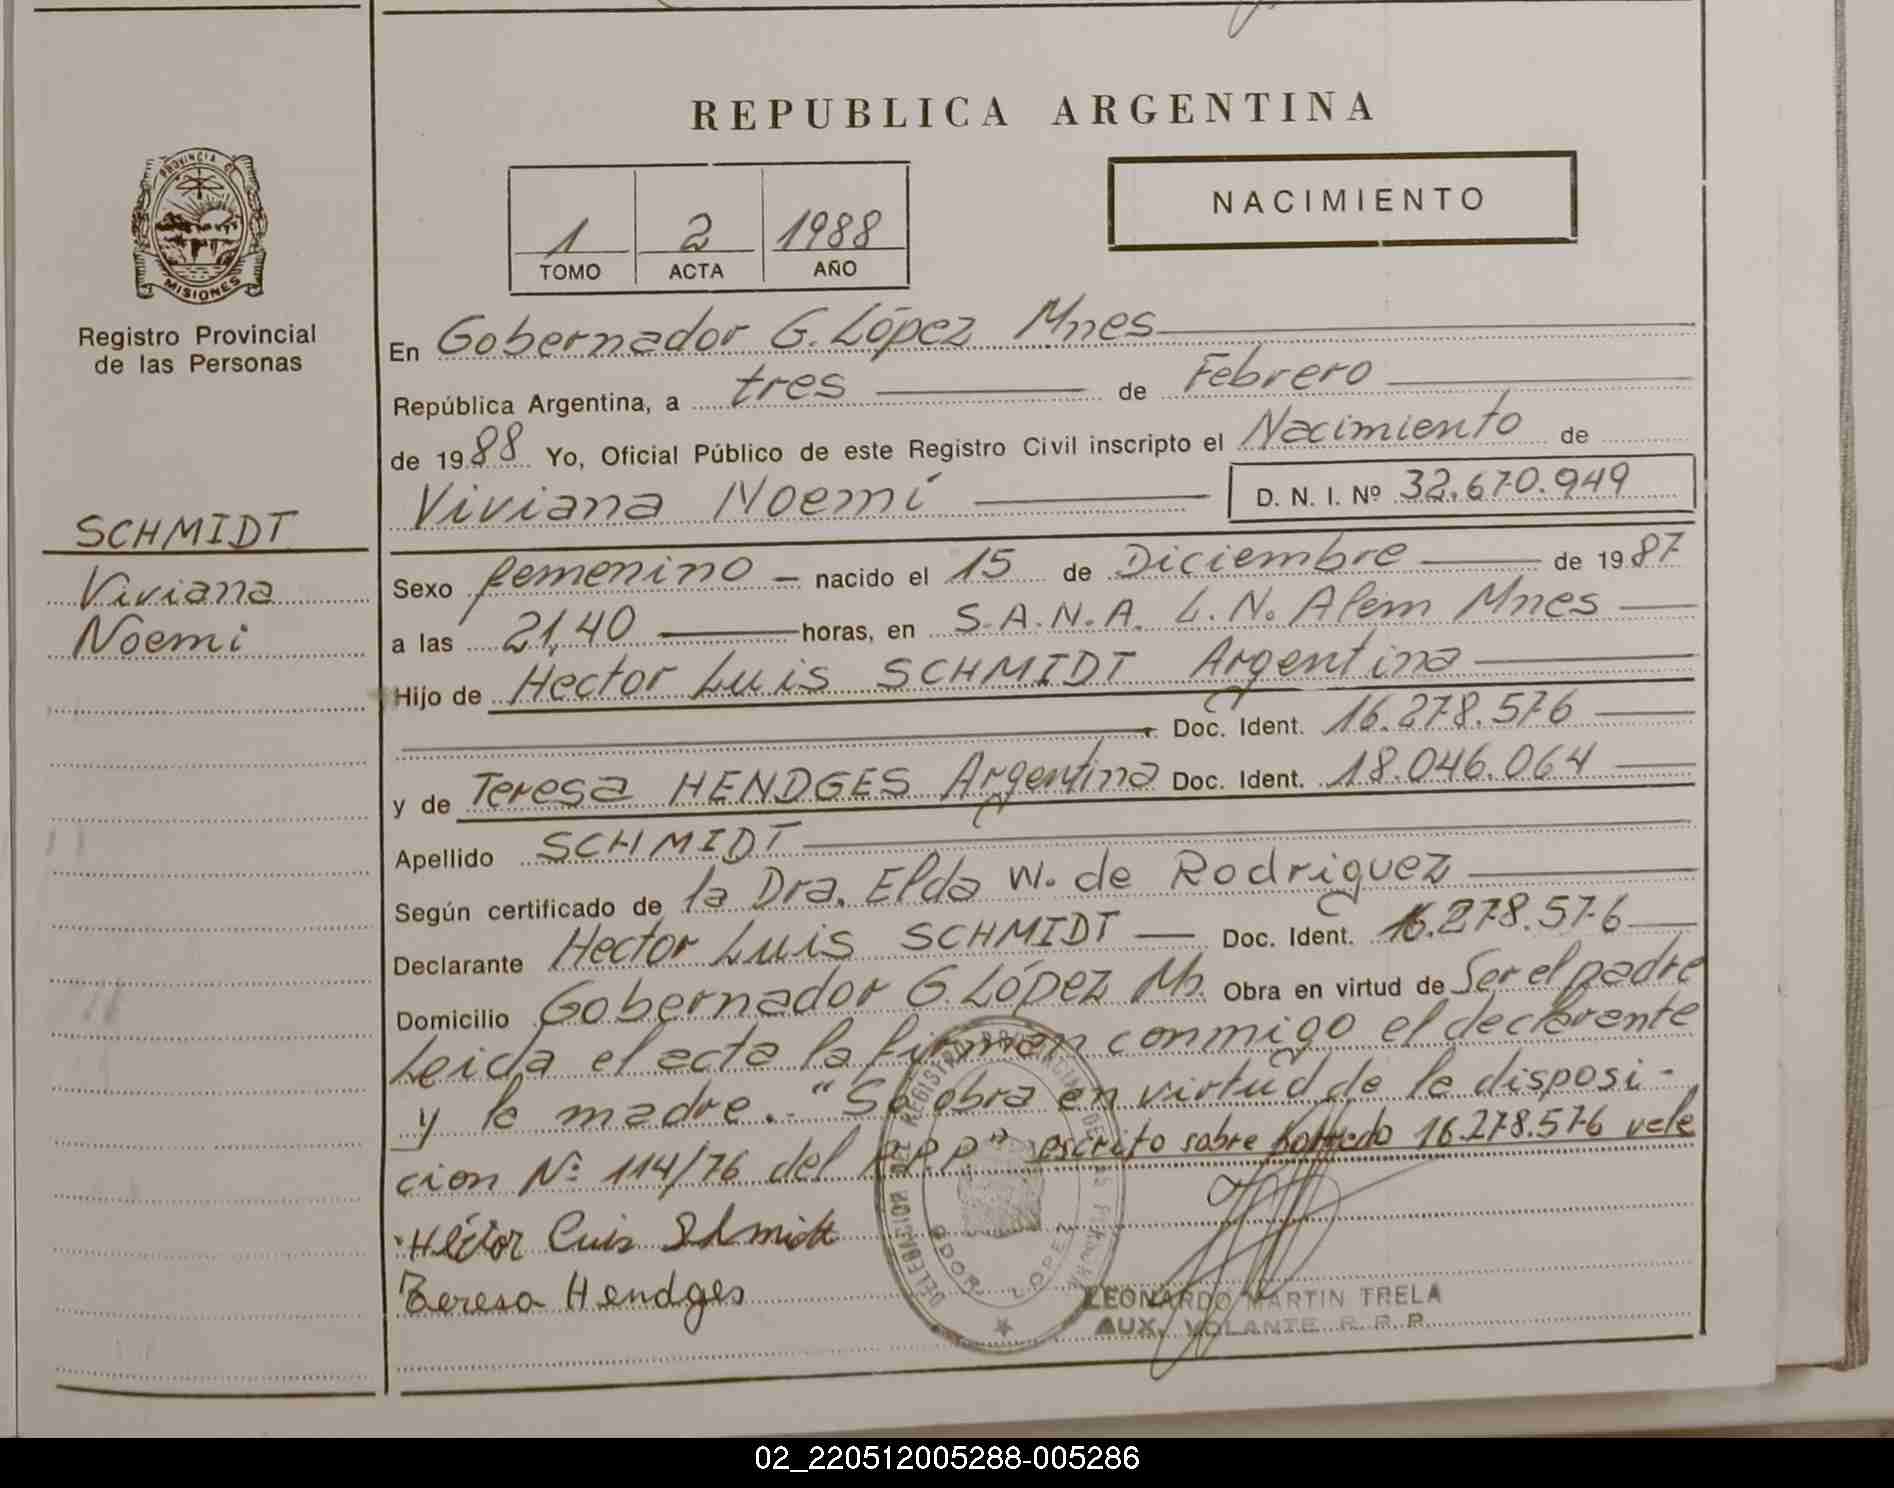 REPUBLICA ARGENTINA
PROVINCIA DE
MISIONES
Registro Provincial
de las Personas
1 2 1988
TOMO ACTA AÑO
NACIMIENTO
En Gobernador G. López Mnes
República Argentina, a tres de Febrero
de 1988 Yo, Oficial Público de este Registro Civil inscripto el Nacimiento de
Viviana Noemí D. N. I. Nº 32.670.949
SCHMIDT
Viviana
Noemi
Sexo femenino nacido el 15 de Diciembre de 1987
a las 21,40 horas, en S.A.N.A. L.N. Alem Mnes
Hijo de Hector Luis SCHMIDT Argentina
Doc. Ident. 16.278.576
y de Teresa HENDGES Argentina Doc. Ident. 18.046.064
Apellido SCHMIDT
Según certificado de la Dra. Elda W. de Rodriguez
Declarante Hector Luis SCHMIDT Doc. Ident. 16.278.576
Domicilio Gobernador G. López Ms. Obra en virtud de Ser el padre
Leida el acta la firman conmigo el declarante
y la madre. - "Se obra en virtud de la disposi-
cion Nº 114/76 del R.P.P." escrito sobre borrado 16.278.576 vale
Héctor Luis Schmidt
Teresa Hendges
DELEGACION DEL REGISTRO PROVINCIAL DE LAS PERSONAS
GDOR. LOPEZ
LEONARDO MARTIN TRELA
AUX. VOLANTE R. P. P.
02_220512005288-005286